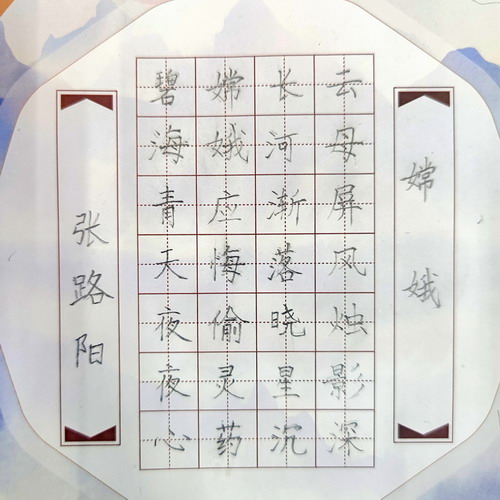 嫦娥
云母屏风烛影深
长河渐落晓星沉
嫦娥应悔偷灵药
碧海青天夜夜心
张路阳